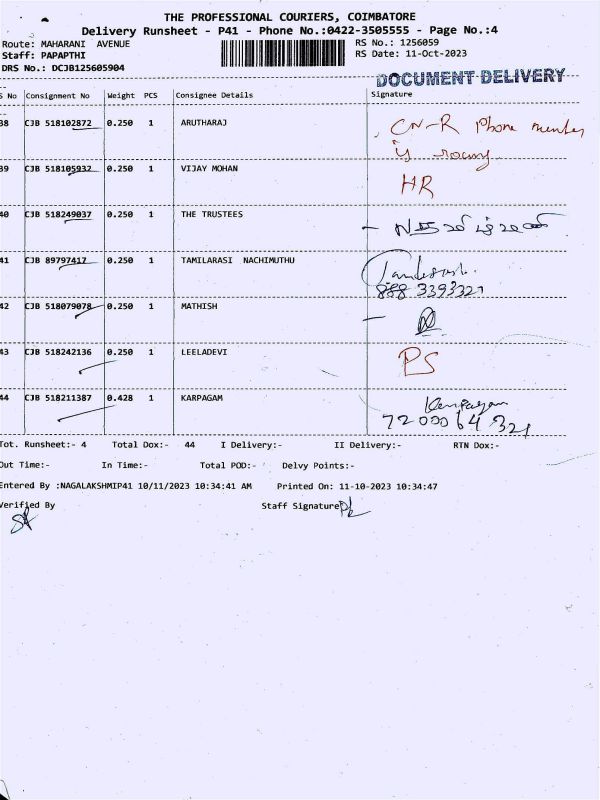 THE PROFESSIONAL COURIERS, COIMBATORE
Delivery Runsheet - P41 - Phone No.:0422-3505555 - Page No.:4
Route: MAHARANI AVENUE
RS No.: 1256059
Staff: PAPAPTHI
RS Date: 11-Oct-2023
DRS No.: DCJB125605904
DOCUMENT DELIVERY
S No Consignment No Weight PCS Consignee Details Signature
38 CJB 518102872 0.250 1 ARUTHARAJ CN-R Phone number
is
39 CJB 518105932 0.250 1 VIJAY MOHAN HR
40 CJB 518249037 0.250 1 THE TRUSTEES
41 CJB 89797417 0.250 1 TAMILARASI NACHIMUTHU
888 3393321
42 CJB 518079078 0.250 1 MATHISH
43 CJB 518242136 0.250 1 LEELADEVI PS
44 CJB 518211387 0.428 1 KARPAGAM Karpagam
7200064321
Tot. Runsheet:- 4 Total Dox:- 44 I Delivery:- II Delivery:- RTN Dox:-
Out Time:- In Time:- Total POD:- Delvy Points:-
Entered By :NAGALAKSHMIP41 10/11/2023 10:34:41 AM Printed On: 11-10-2023 10:34:47
Verified By Staff Signature